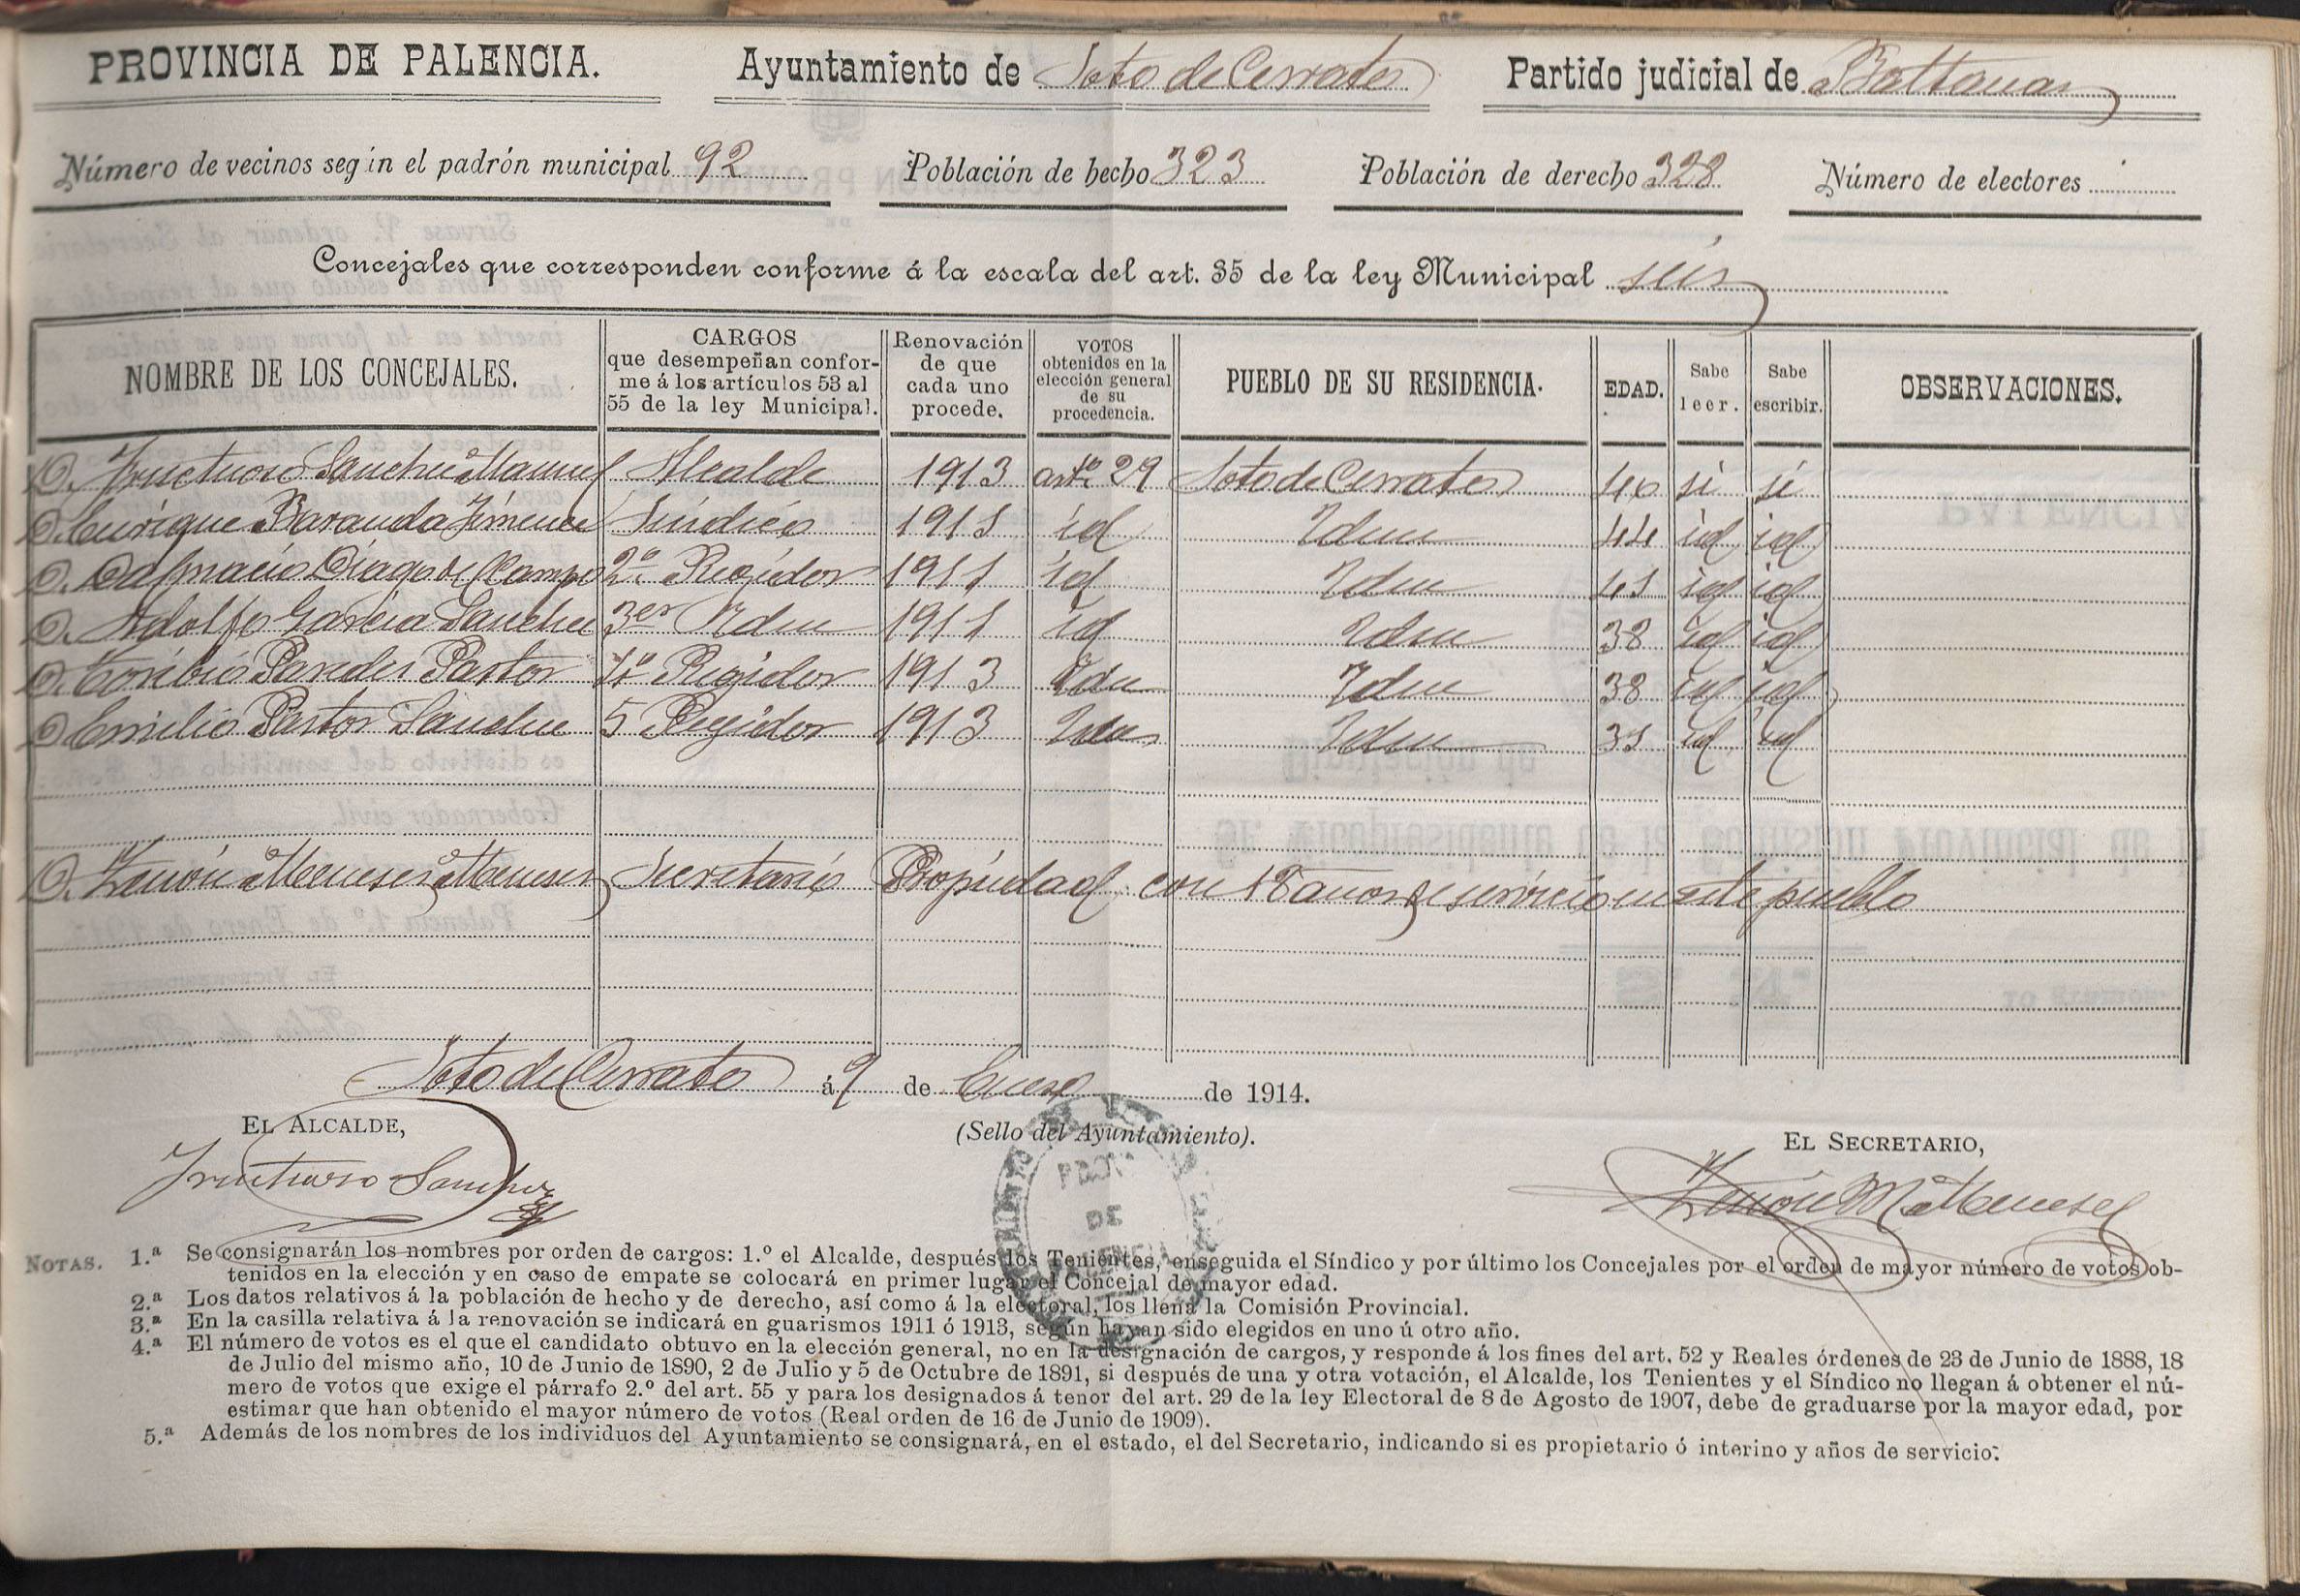 PROVINCIA DE PALENCIA. Ayuntamiento de Soto de Cerrato Partido judicial de Baltanas
Número de vecinos según el padrón municipal 92 Población de hecho 323 Población de derecho 328 Número de electores
Concejales que corresponden conforme á la escala del art. 35 de la ley Municipal seis
NOMBRE DE LOS CONCEJALES. CARGOS que desempeñan conforme á los artículos 53 al 55 de la ley Municipal. Renovación de que cada uno procede. VOTOS obtenidos en la elección general de su procedencia. PUEBLO DE SU RESIDENCIA. EDAD. Sabe leer. Sabe escribir. OBSERVACIONES.
D. Fructuoso Sanchez Manuel Alcalde 1913 artº 29 Soto de Cerrato 46 si si
D. Enrique Baranda Jimenez Síndico 1911 id Idem 44 id id
D. Dalmacio Diago del Campo 2º Regidor 1911 id Idem 41 id id
D. Adolfo Garcia Sanchez 3er Idem 1911 id Idem 38 id id
D. Toribio Paredes Pastor 4º Regidor 1913 Idem Idem 38 id id
D. Emilio Pastor Sanchez 5 Regidor 1913 Idem Idem 31 id id
D. Zenón Meneses Meneses Secretario Propiedad con 18 años de servicio en este pueblo
Soto de Cerrato á 9 de Enero de 1914.
EL ALCALDE, (Sello del Ayuntamiento). EL SECRETARIO,
Fructuoso Sanchez Zenón M Meneses
DE
NOTAS. 1.ª Se consignarán los nombres por orden de cargos: 1.º el Alcalde, después los Tenientes, enseguida el Síndico y por último los Concejales por el orden de mayor número de votos ob-
tenidos en la elección y en caso de empate se colocará en primer lugar el Concejal de mayor edad.
2.ª Los datos relativos á la población de hecho y de derecho, así como á la electoral, los llena la Comisión Provincial.
3.ª En la casilla relativa á la renovación se indicará en guarismos 1911 ó 1913, según hayan sido elegidos en uno ú otro año.
4.ª El número de votos es el que el candidato obtuvo en la elección general, no en la designación de cargos, y responde á los fines del art. 52 y Reales órdenes de 23 de Junio de 1888, 18
de Julio del mismo año, 10 de Junio de 1890, 2 de Julio y 5 de Octubre de 1891, si después de una y otra votación, el Alcalde, los Tenientes y el Síndico no llegan á obtener el nú-
mero de votos que exige el párrafo 2.º del art. 55 y para los designados á tenor del art. 29 de la ley Electoral de 8 de Agosto de 1907, debe de graduarse por la mayor edad, por
estimar que han obtenido el mayor número de votos (Real orden de 16 de Junio de 1909).
5.ª Además de los nombres de los individuos del Ayuntamiento se consignará, en el estado, el del Secretario, indicando si es propietario ó interino y años de servicio.